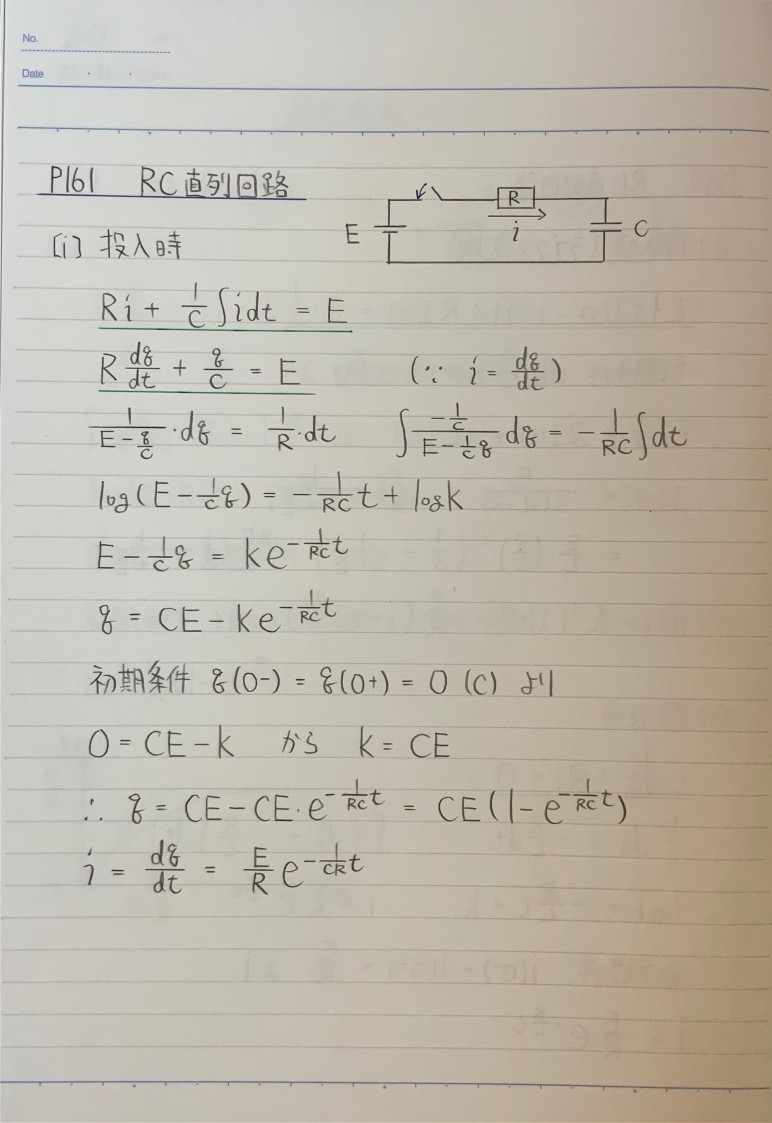 No.
Date
P161 RC直列回路
E R i C
[i] 投入時
Ri + 1/C ∫idt = E
R dq/dt + q/C = E (∵ i = dq/dt)
1/(E - q/C)・dq = 1/R・dt ∫ (-1/C)/(E - 1/C q) dq = - 1/RC ∫dt
log(E - 1/C q) = - 1/RC t + logk
E - 1/C q = ke^(- 1/RC t)
q = CE - ke^(- 1/RC t)
初期条件 q(0-) = q(0+) = 0 (C) より
0 = CE - k から k = CE
∴ q = CE - CE・e^(- 1/RC t) = CE(1 - e^(- 1/RC t))
i = dq/dt = E/R e^(- 1/CR t)